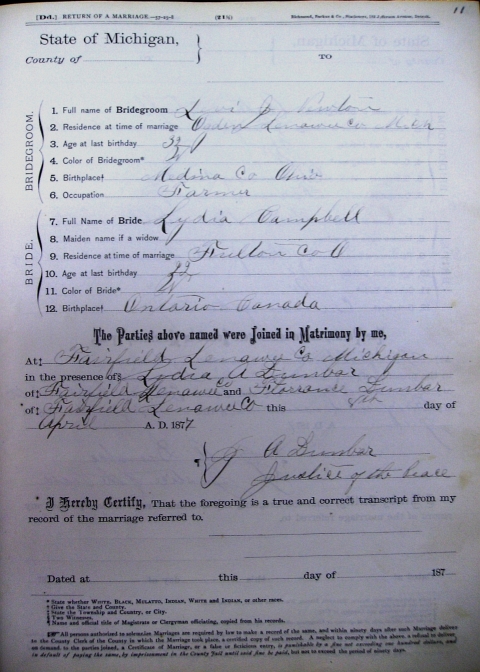 11
[Dd.] RETURN OF A MARRIAGE.
State of Michigan,
County of
TO
BRIDEGROOM.
1. Full name of Bridegroom Levi J Newton
2. Residence at time of marriage Ogden Lenawee Co Mich
3. Age at last birthday
4. Color of Bridegroom* W
5. Birthplace† Medina Co Ohio
6. Occupation Farmer
BRIDE.
7. Full Name of Bride Lydia Campbell
8. Maiden name if a widow
9. Residence at time of marriage Fulton Co O
10. Age at last birthday
11. Color of Bride* W
12. Birthplace† Ontario Canada
The Parties above named were Joined in Matrimony by me,
At‡ Fairfield Lenawee Co Michigan
in the presence of§ Lydia A Dunbar
of‡ Fairfield Lenawee Co and Florrance Dunbar
of‡ Fairfield Lenawee Co this 8th day of
April A. D. 1877
A Dunbar
Justice of the Peace
I Hereby Certify, That the foregoing is a true and correct transcript from my
record of the marriage referred to.
Dated at this day of 187
* State whether WHITE, BLACK, MULATTO, INDIAN, WHITE and INDIAN, or other races.
† Give the State and County.
‡ State the Township and Country, or City.
§ Two Witnesses.
¶ Name and official title of Magistrate or Clergyman officiating, copied from his records.
All persons authorized to solemnize Marriages are required by law to make a record of the same, and within ninety days after each Marriage deliver
to the County Clerk of the County in which the Marriage took place, a certified copy of such record. A neglect to comply with the above, a refusal to deliver
on demand to the parties joined, a Certificate of Marriage, or a false or fictitious entry, is punishable by a fine not exceeding one hundred dollars, and
in default of paying the same, by imprisonment in the County Jail until said fine be paid, but not to exceed the period of ninety days.